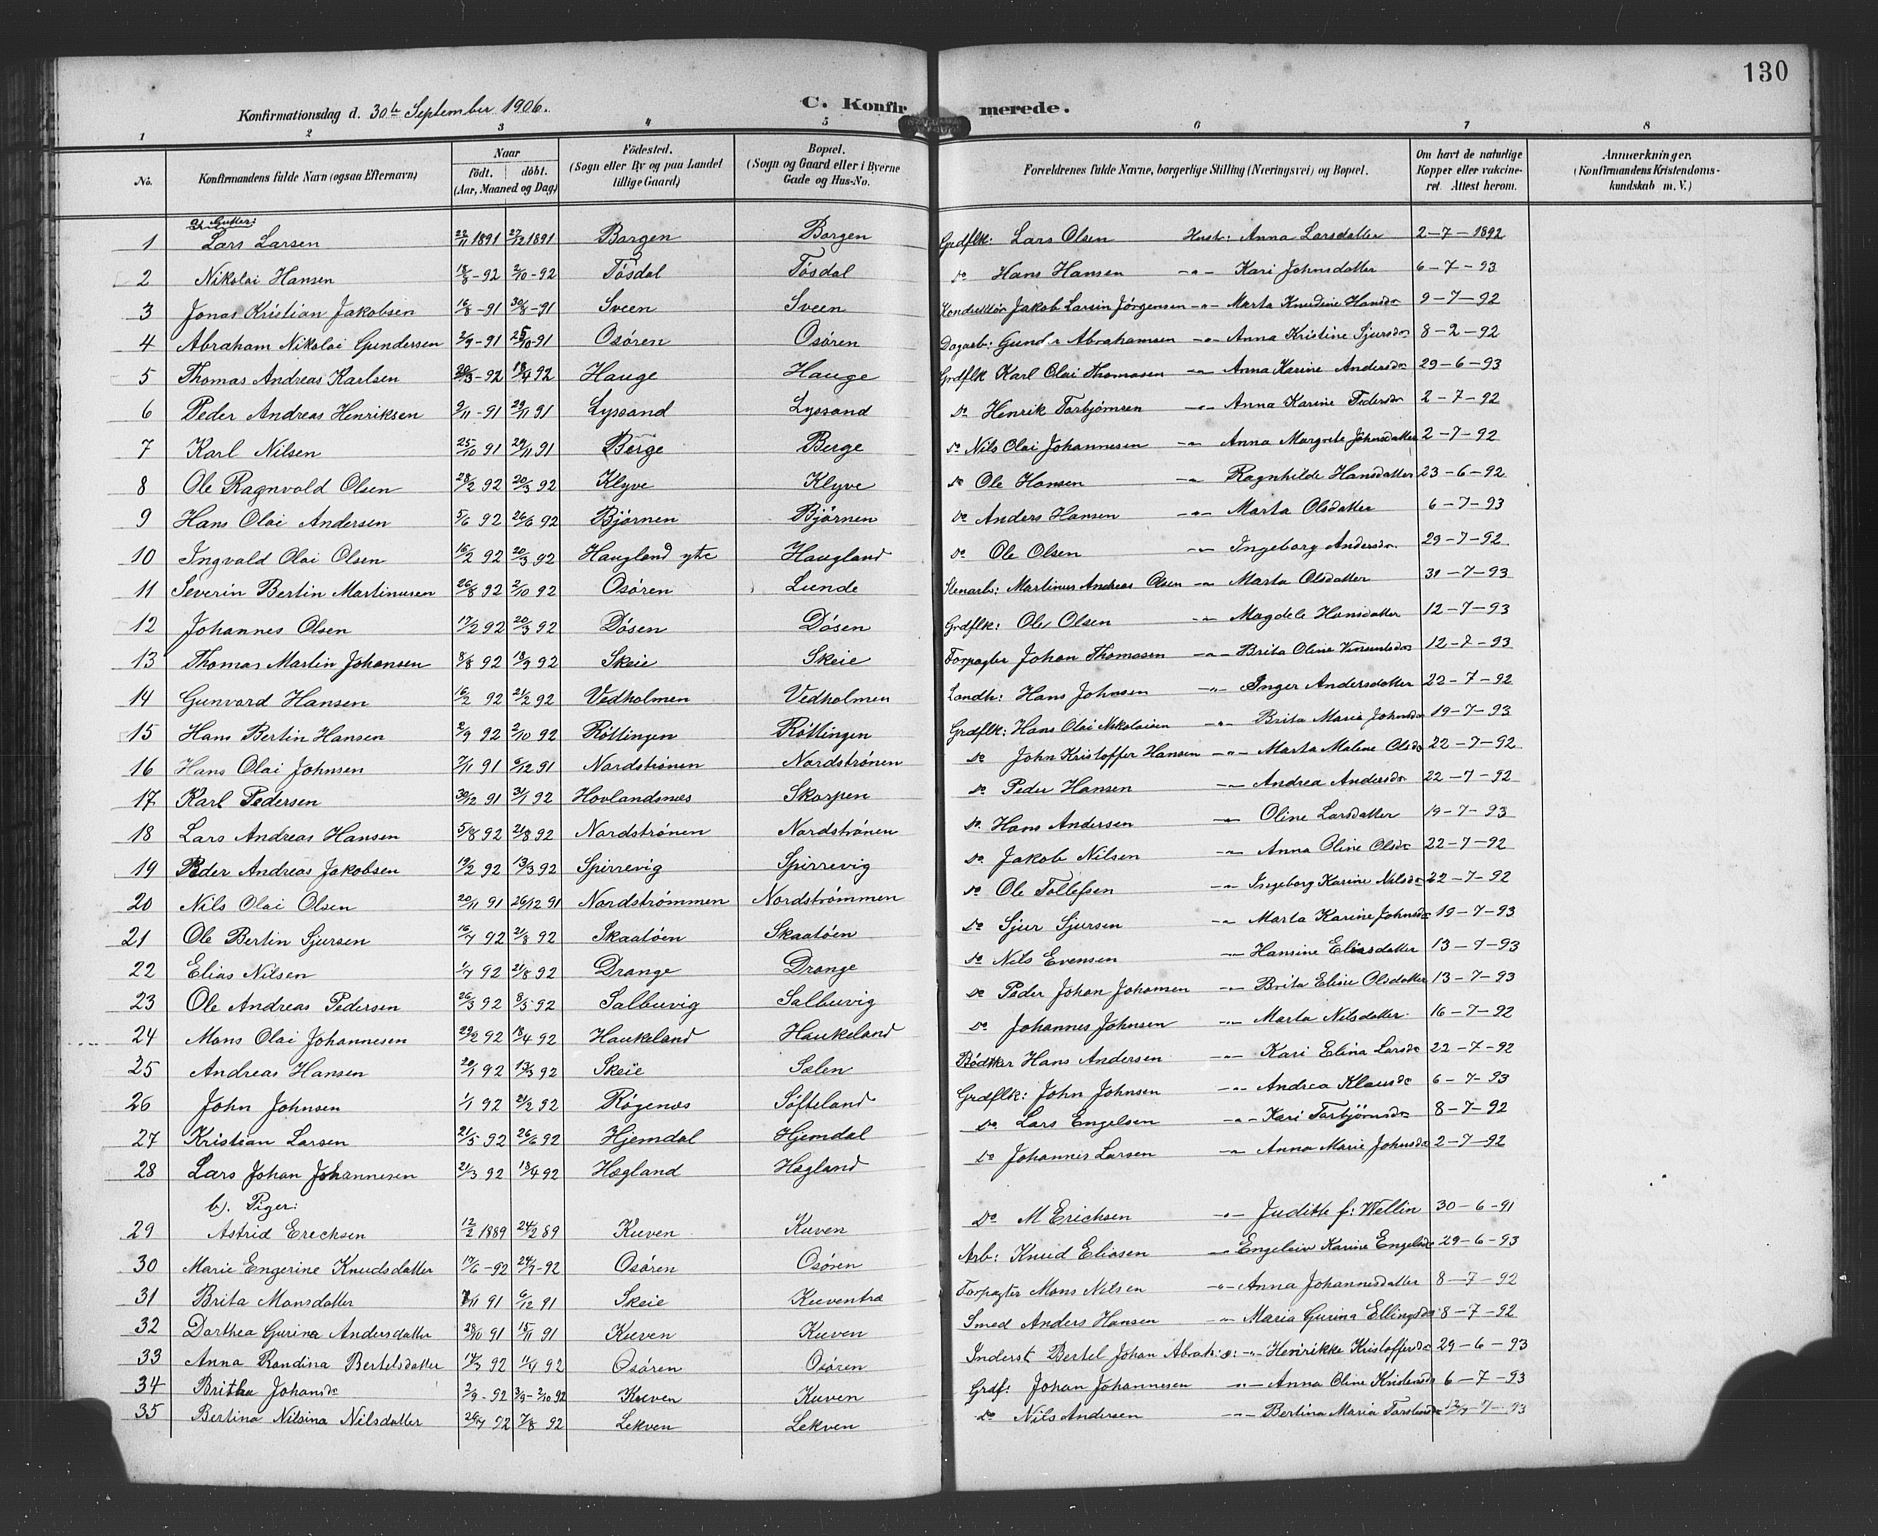 130
C. Konfirmerede.
Konfirmationsdag d. 30te September 1906.
1 2 3 4 5 6 7 8
No. Konfirmandens fulde Navn (ogsaa Efternavn) Naar født. døbt. (Aar, Maaned og Dag) Fødested. (Sogn eller By og paa Landet tillige Gaard) Bopæl. (Sogn og Gaard eller i Byerne Gade og Hus-No. Forældrenes fulde Navne, borgerlige Stilling (Næringsvei) og Bopæl. Om havt de naturlige Kopper eller vakcineret. Attest herom. Anmærkninger. (Konfirmandens Kristendomskundskab m. V.)
Gutter:
1 Lars Larsen 22/11 1891 27/12 1891 Borgen Borgen Grdflk: Lars Olsen Hust: Anna Larsdatter 2-7-1892
2 Nikolai Hansen 18/8-92 2/10-92 Tøsdal Tøsdal do Hans Hansen -"- Kari Johnsdatter 6-7-93
3 Jonas Kristian Jakobsen 16/8-91 30/8-91 Sveen Sveen Konduktør Jakob Larsin Jørgensen -"- Marta Knudine Hansdr 9-7-92
4 Abraham Nikolai Gundersen 2/9-91 25/10-91 Osøren Osøren Dagarb: Gunder Abrahamsen -"- Anna Kristine Sjursdr 8-2-92
5 Thomas Andreas Karlsen 20/3-92 18/4 92 Hauge Hauge Grdflk Karl Olai Thomasen -"- Anna Karine Andersdr 29-6-93
6 Peder Andreas Henriksen 2/11-91 29/11 91 Lyssand Lyssand do Henrik Torbjørnsen -"- Anna Karine Pedersdr 2-7-92
7 Karl Nilsen 25/10 91 29/11 91 Berge Berge do Nils Olai Johannesen -"- Anna Margrete Johnsdatter 2-7-92
8 Ole Ragnvald Olsen 28/2 92 20/3 92 Klyve Klyve do Ole Hansen -"- Ragnhilde Hansdatter 23-6-92
9 Hans Olai Andersen 5/6 92 26/6 92 Bjørnen Bjørnen do Anders Hansen -"- Marta Olsdatter 6-7-93
10 Ingvald Olai Olsen 16/2 92 20/3 92 Haugland ytre Haugland do Ole Olsen -"- Ingeborg Andersdr 29-7-92
11 Severin Bertin Martinusen 26/8 92 2/10 92 Osøren Lunde Stenarb: Martinus Andreas Olsen -"- Marta Olsdatter 31-7-93
12 Johannes Olsen 17/2 92 20/3 92 Døsen Døsen Grdflk: Ole Olsen -"- Magdele Hansdatter 12-7-93
13 Thomas Martin Johansen 8/8 92 18/9 92 Skeie Skeie Forpagter Johan Thomasen -"- Brita Oline Vinsentsdr 12-7-93
14 Gunvard Hansen 16/2 92 21/2 92 Vedholmen Vedholmen Landh: Hans Johnsen -"- Inger Andersdatter 22-7-92
15 Hans Bertin Hansen 2/9 92 2/10 92 Røttingen Røttingen Grdflk: Hans Olai Nikolaisen -"- Brita Maria Johnsdr 19-7-93
16 Hans Olai Johnsen 7/11 91 6/12 91 Nordstrønen Nordstrønen do John Kristoffer Hansen -"- Marta Malene Olsdr 22-7-92
17 Karl Pedersen 30/12 91 31/1 92 Hovlandsnæs Skorpen do Peder Hansen -"- Andrea Andersdr 22-7-92
18 Lars Andreas Hansen 5/8 92 21/8 92 Nordstrønen Nordstrønen do. Hans Andersen -"- Oline Larsdatter 19-7-93
19 Peder Andreas Jakobsen 19/2 92 13/3 92 Spirrevig Spirrevig do Jakob Nilsen -"- Anna Oline Olsdr 22-7-92
20 Nils Olai Olsen 20/11 91 26/12 91 Nordstrømmen Nordstrømmen do Ole Tollefsen -"- Ingeborg Karine Nilsdr 22-7-92
21 Ole Bertin Sjursen 16/7 92 21/8 92 Skaatøen Skaatøen do Sjur Sjursen -"- Marta Karine Johnsdr 19-7-93
22 Elias Nilsen 1/7 92 21/8 92 Drange Drange do Nils Evensen -"- Hansine Eliasdatter 13-7-93
23 Ole Andreas Pedersen 26/3 92 8/5 92 Salbuvig Salbuvig do Peder Johan Johansen -"- Brita Elise Olsdatter 13-7-93
24 Mons Olai Johannesen 29/2 92 18/4 92 Haukeland Haukeland do Johannes Johnsen -"- Marta Nilsdatter. 16-7-92
25 Andreas Hansen 20/1 92 13/3 92 Skeie Sælen Bødtker Hans Andersen -"- Kari Elina Larsdr 22-7-92
26 John Johnsen 1/1 92 21/2 92 Røgenæs Søfteland Grdflk: John Johnsen -"- Andrea Klausdr 6-7-93
27 Kristian Larsen 21/5 92 26/6 92 Hjemdal Hjemdal do Lars Engelsen -"- Kari Torbjørnsdr 8-7-92
28 Lars Johan Johannesen 21/3 92 18/4 92 Hægland Hægland do Johannes Larsen -"- Anna Marie Johnsdr 2-7-92
b). Piger:
29 Astrid Erechsen 12/2 1889 24/2 89 Kuven Kuven do M Erichsen -"- Judithe f: Wellin 30-6-91
30 Marie Engerine Knudsdatter 17/6-92 24/7-92 Osøren Osøren Arb: Knud Eliasen -"- Karine Engelsdr 29-6-93
31 Brita Monsdatter 1/11 91 6/12 91 Skeie Kuventræ Forpagter Mons Nilsen -"- Anna Johannesdatter 8-7-92
32 Dorthea Gurina Andersdatter 28/10 91 15/11 91 Kuven Kuven Smed Anders Hansen -"- Maria Gurina Ellingsdr 8-7-92
33 Anna Randina Bertelsdatter 14/3 92 92 Osøren Osøren Inderst Bertel Johan Abrah:s: -"- Henrikke Kristoffersdr 29-6-93
34 Britha Johansdr 2/9-92 2/10 92 Kuven Kuven Grdf: Johan Johannesen -"- Anna Oline Kristensdr 6-7-93
35 Bertina Nilsina Nilsdatter 26/7 92 7/8 92 Lekven Lekven do Nils Andersen -"- Bertina Maria Torstensdr 7-93